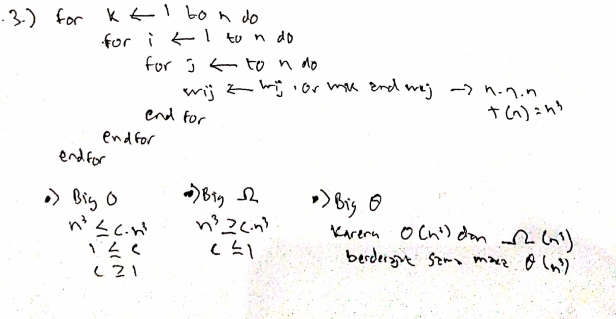 3.) for k ← 1 to n do
for i ← 1 to n do
for j ← to n do
wij ← wij or wik and wkj → n.n.n
T(n) = n³
end for
endfor
endfor
•) Big O
n³ ≤ c.n³
1 ≤ c
c ≥ 1
•) Big Ω
n³ ≥ c.n³
c ≤ 1
•) Big Θ
Karena O(n³) dan Ω(n³)
berderajat sama maka Θ(n³)